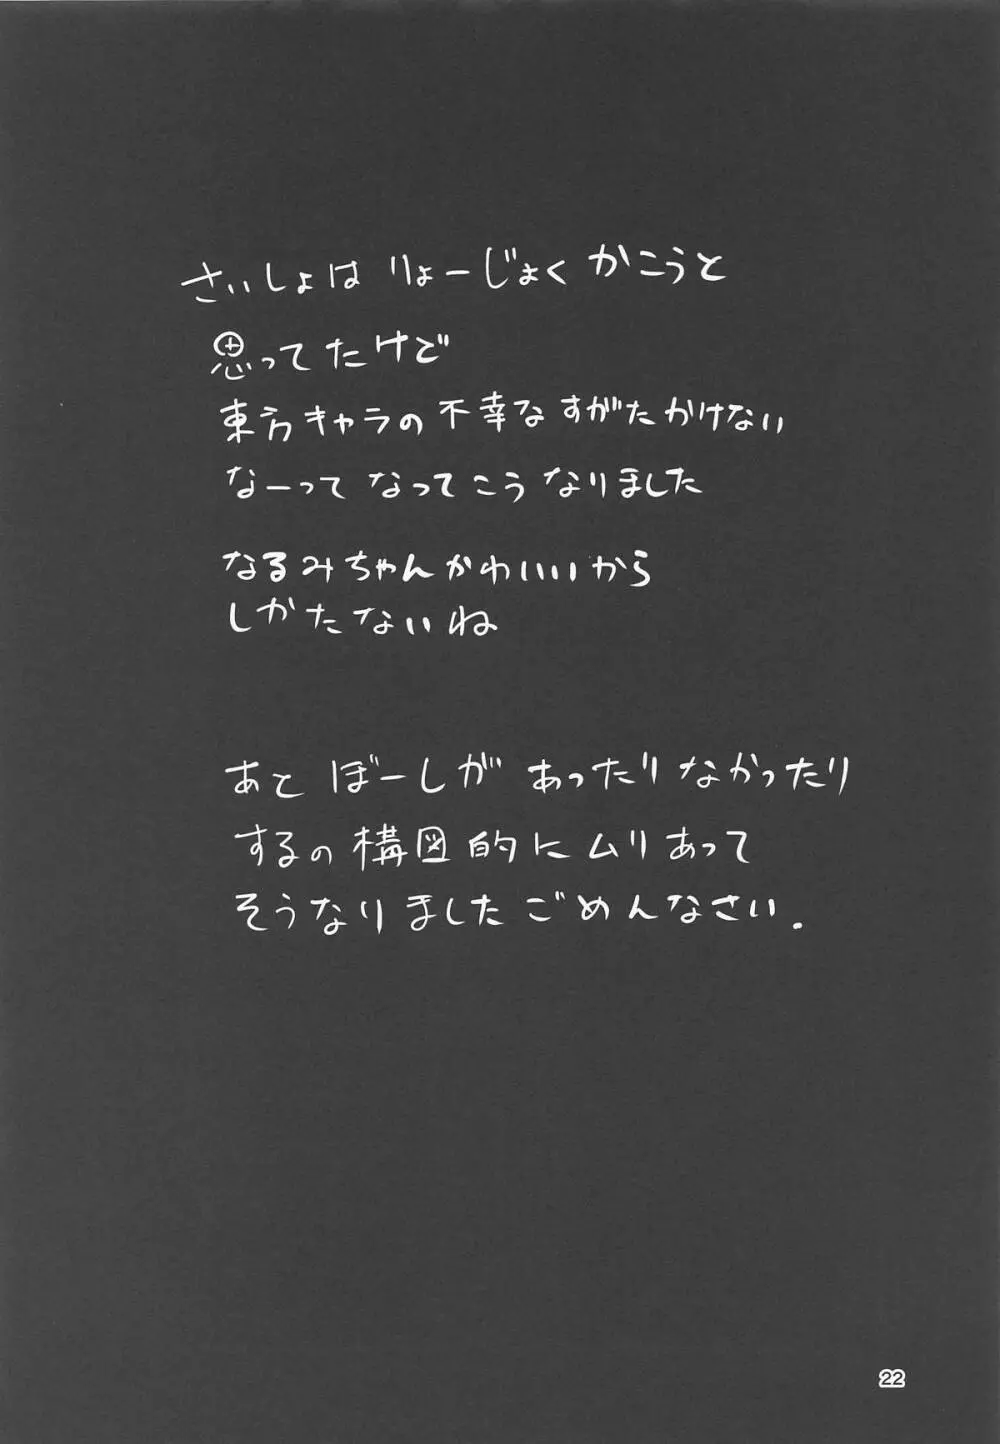 さいしょは りょーじょく かこうと
思ってたけど
東方キャラの 不幸な すがたかけない
なーって なってこう なりました
なるみちゃんかわいいから
しかたないね
あと ぼーしが あったり なかったり
するの構図的にムリあって
そうなりましたごめんなさい.
22